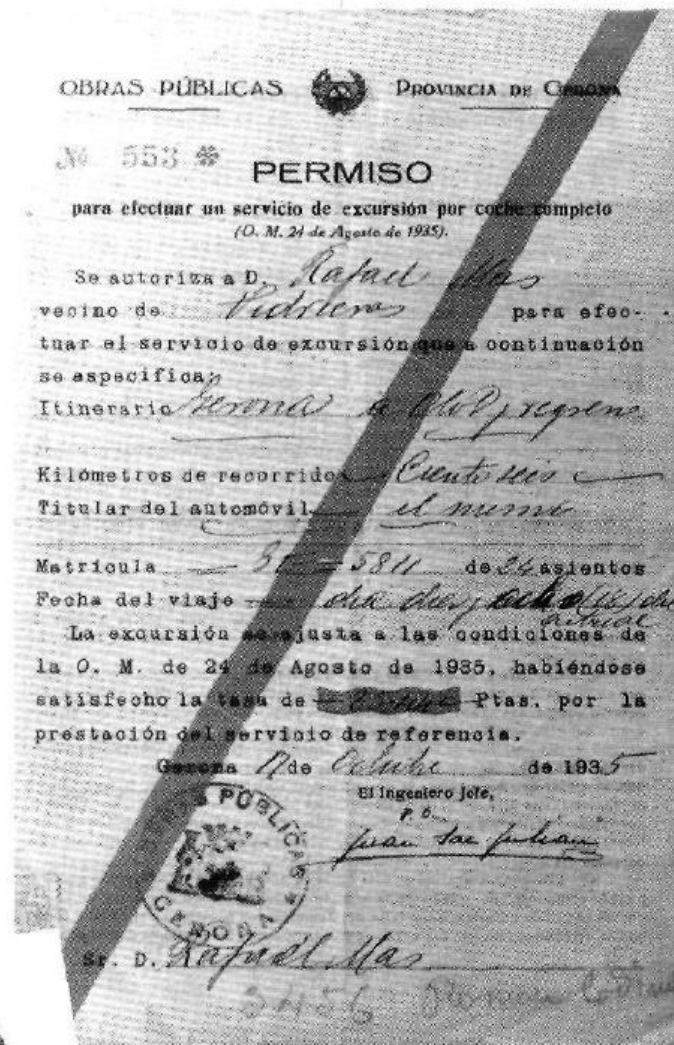 OBRAS PÚBLICAS PROVINCIA DE GERONA
Nº 553
PERMISO
para efectuar un servicio de excursión por coche completo
(O. M. 24 de Agosto de 1935).
Se autoriza a D. Rafael Mas
vecino de Vidreras para efec-
tuar el servicio de excursión que a continuación
se especifica:
Itinerario Gerona a Olot y regreso
Kilómetros de recorrido Ciento seis
Titular del automóvil el mismo
Matrícula 5811 de 24 asientos
Fecha del viaje día diez y ocho (18) del
actual
La excursión se ajusta a las condiciones de
la O. M. de 24 de Agosto de 1935, habiéndose
satisfecho la tasa de Ptas. por la
prestación del servicio de referencia.
Gerona 17 de Octubre de 1935
El Ingeniero jefe,
P. O.
OBRAS PÚBLICAS
GERONA
Sr. D. Rafael Mas
3456